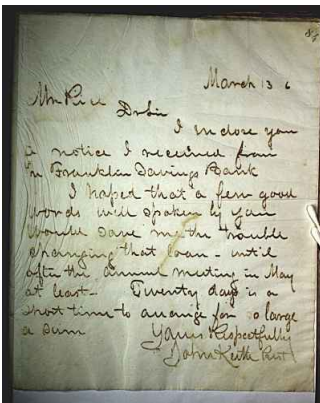 84
March 13 6
Mr Rice
Dr Sir
I inclose you
a notice I received from
Franklin Savings Bank
I hoped that a few good
words well spoken by you
would save me the trouble
changing that loan - until
after the annual meeting in May
at least - Twenty days is a
short time to arrange for so large
a sum
Yours Respectfully
John Keith